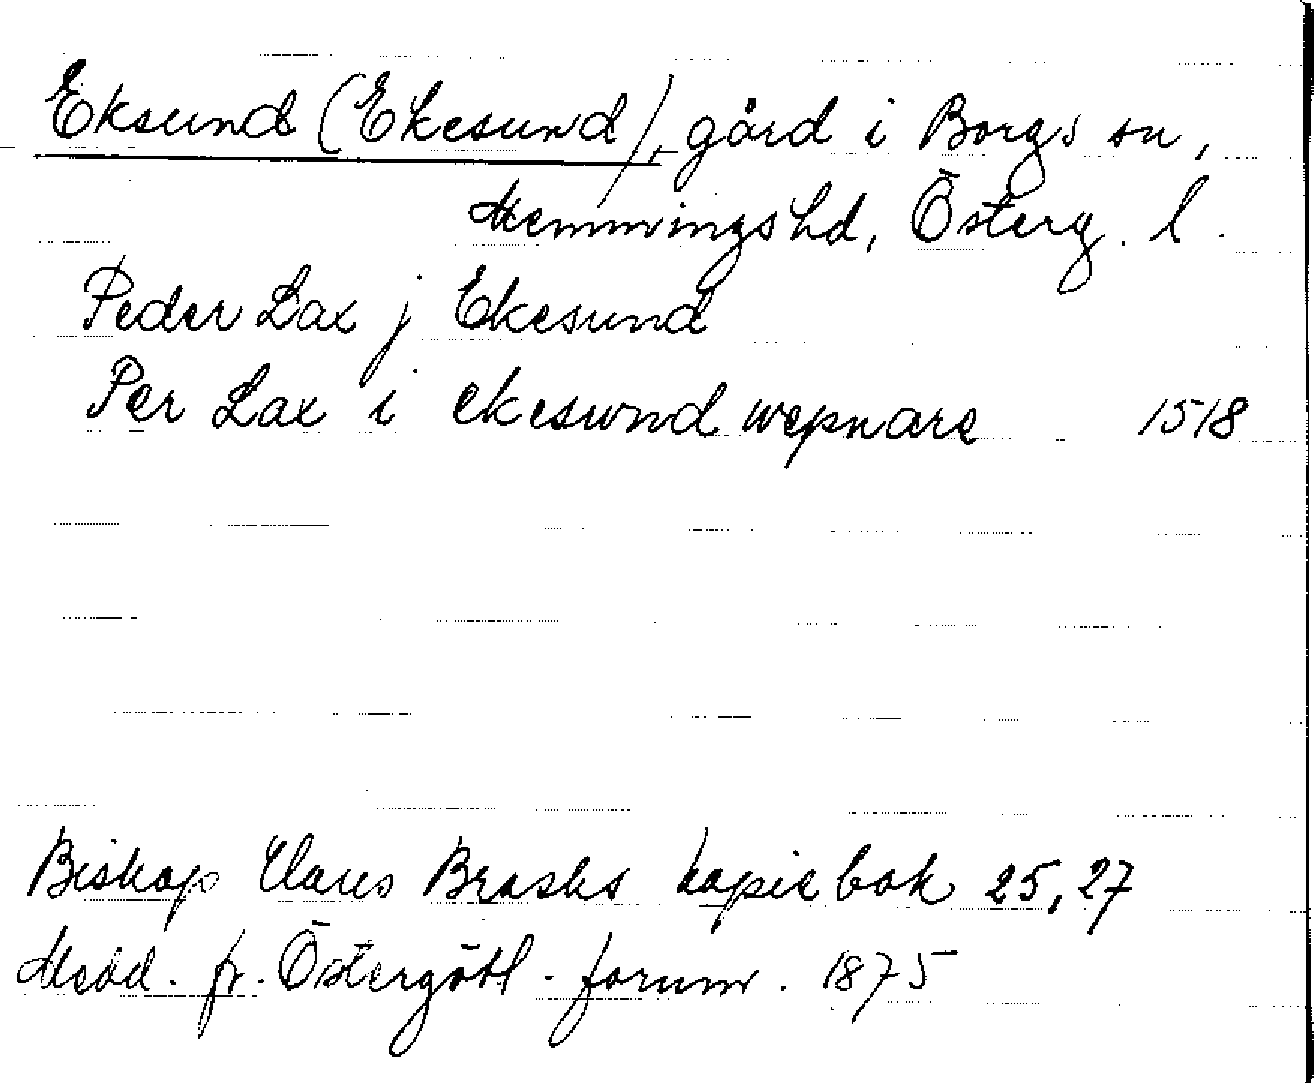 Eksund (Ekesund), gård i Borgs sn,
Memmings hd, Österg. l.
Peder Lax j Ekesund
Per Lax i ekesund wepnare 1518
Biskop Claus Brasks kopiebok 25, 27
Medd. fr. Östergötl. fornm. 1875